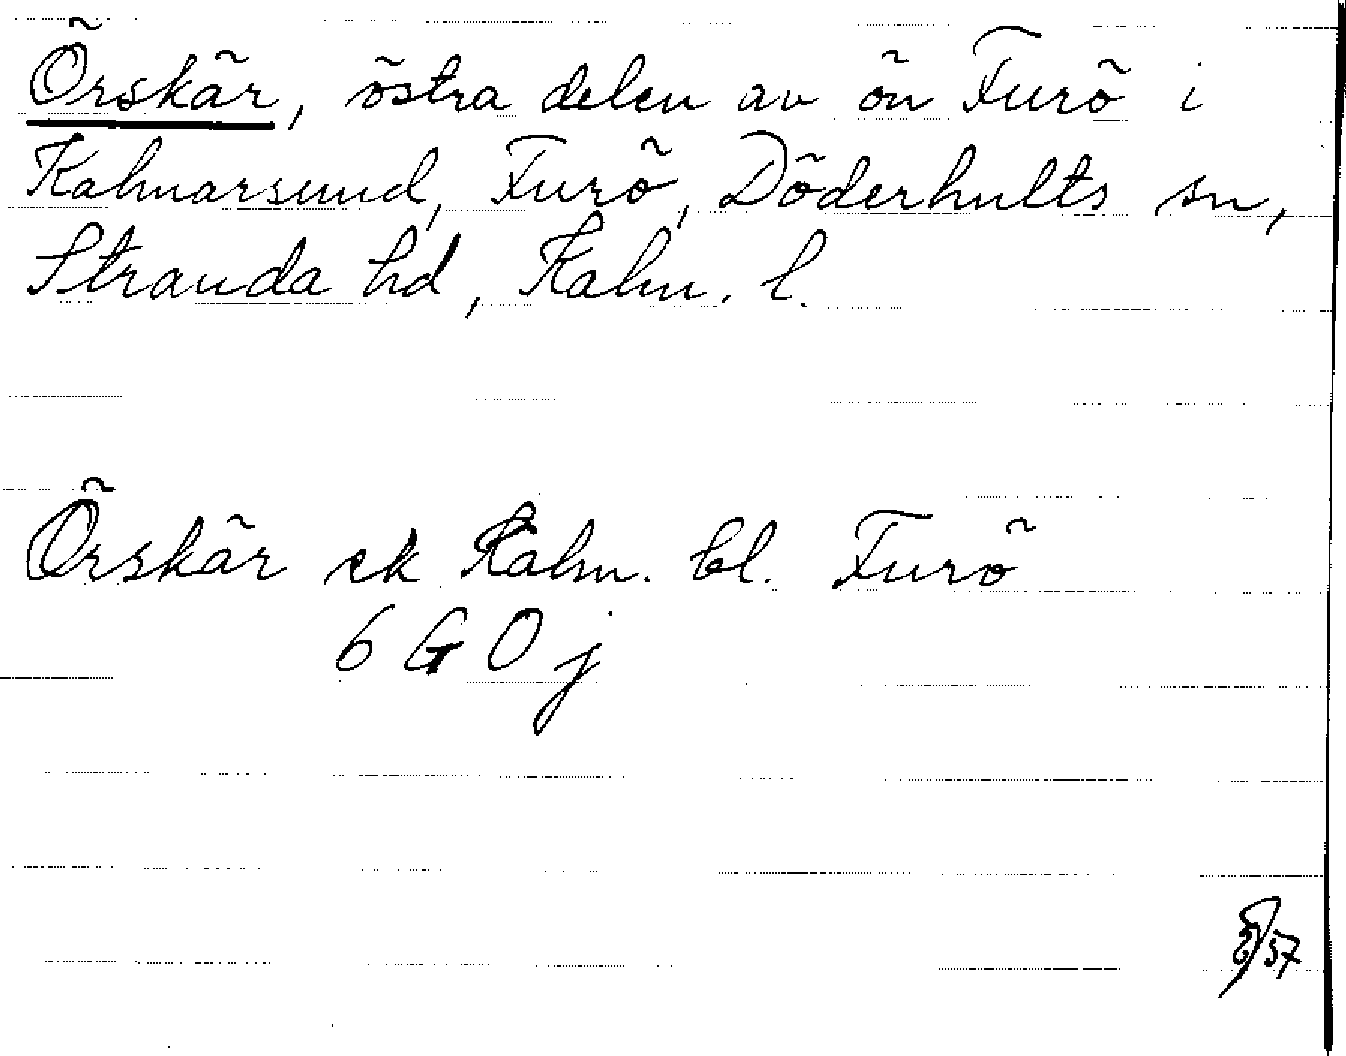 Örskär, östra delen av ön Furö i
Kalmarsund, Furö, Döderhults sn,
Stranda hd, Kalm. l.
Örskär ek Kalm. bl. Furö
6 G O j